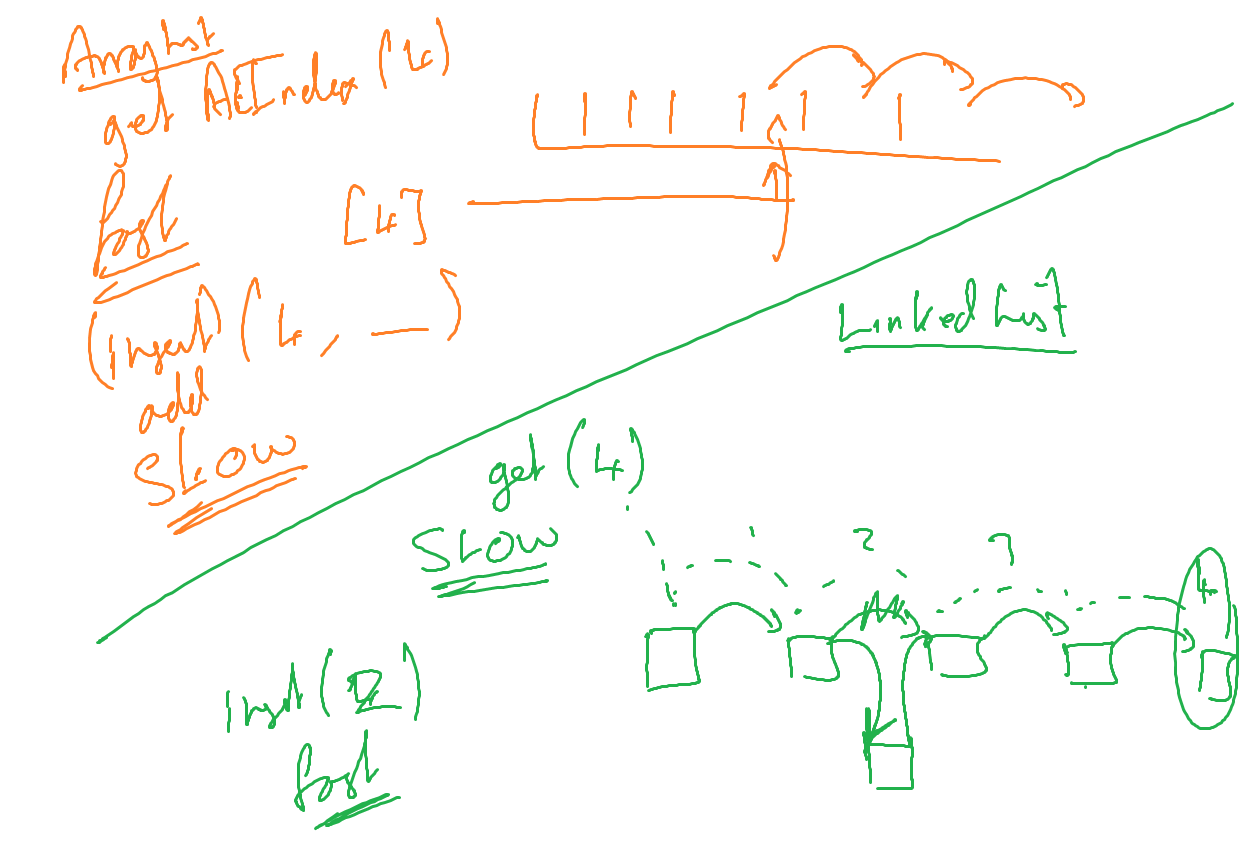 ArrayList
get AtIndex (4)
fast
[4]
(insert) (4, —)
add
SLOW
Linked List
get (4)
SLOW
1 2 3 4
insert (2)
fast